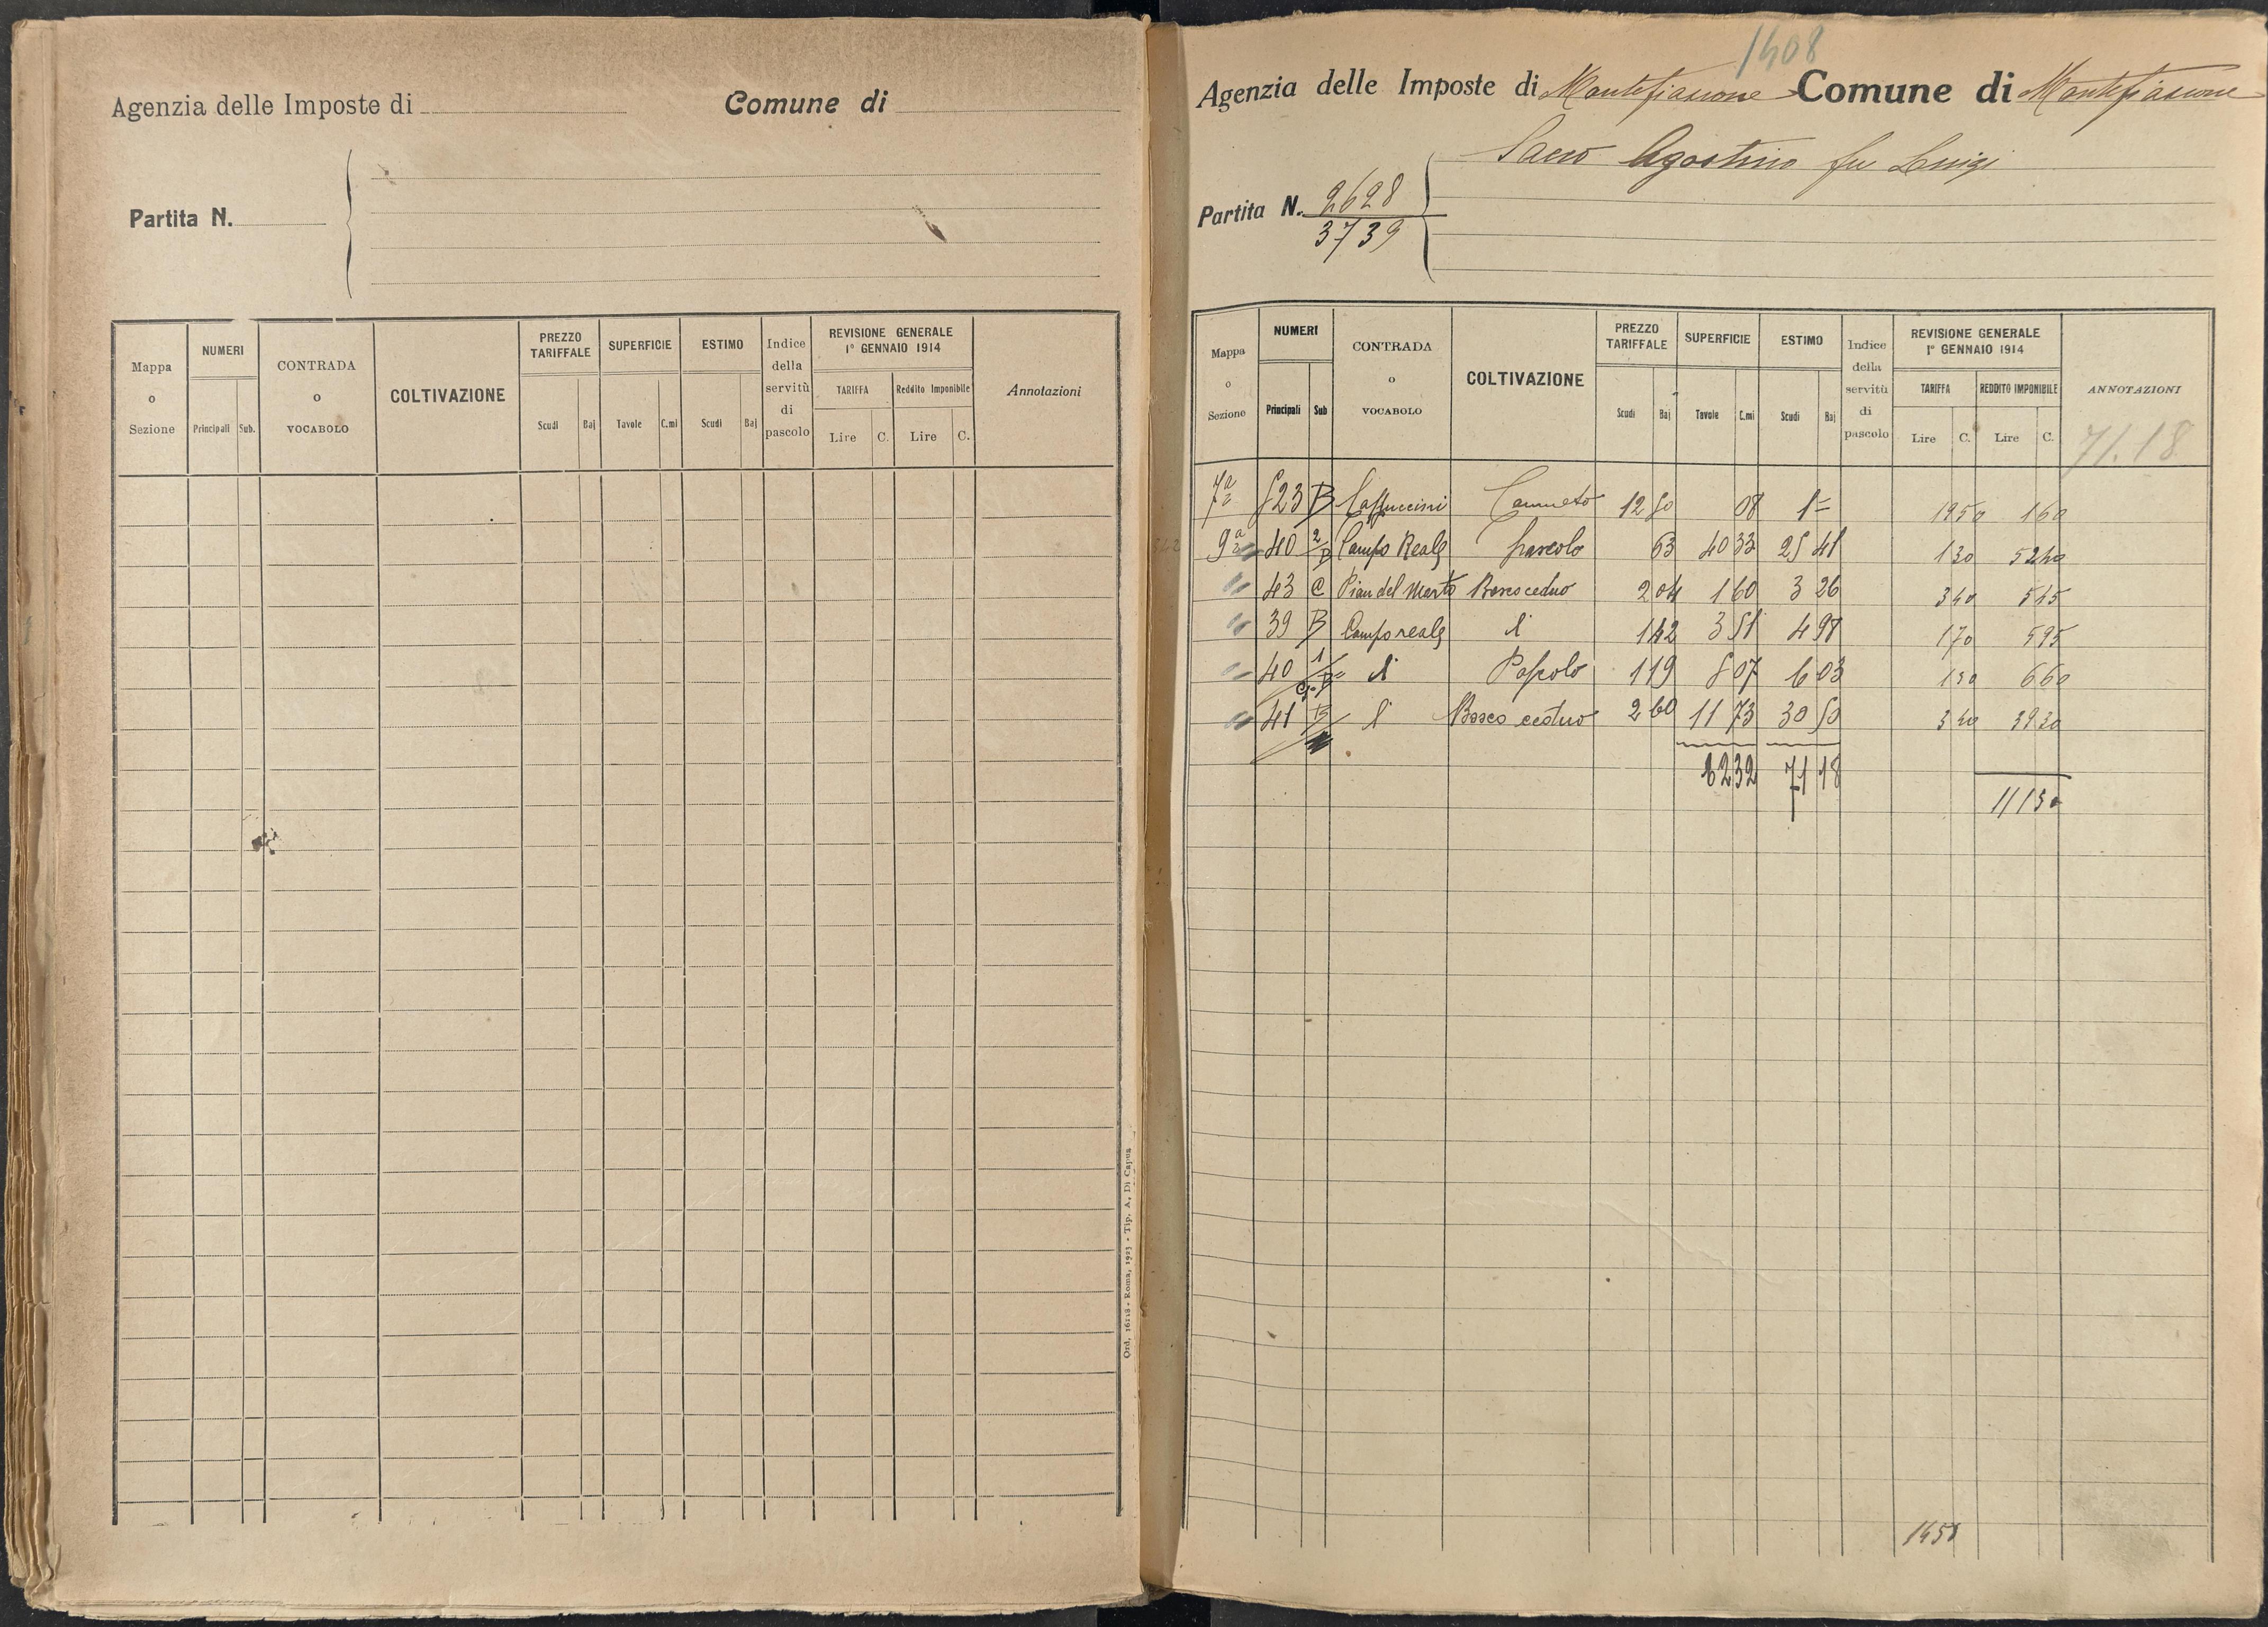 Agenzia delle Imposte di
Comune di
Partita N.
Mappa o Sezione
NUMERI
Principali
Sub.
CONTRADA o VOCABOLO
COLTIVAZIONE
PREZZO TARIFFALE
Scudi
Baj
SUPERFICIE
Tavole
C.mi
ESTIMO
Scudi
Baj
Indice della servitù di pascolo
REVISIONE GENERALE
1° GENNAIO 1914
TARIFFA
Reddito Imponibile
Lire
C.
Lire
C.
Annotazioni
Ord. 16118 - Roma, 1923 - Tip. A. Di Capua
1408
Agenzia delle Imposte di Montefiascone Comune di Montefiascone
Agostino fu Luigi
Partita N. 2628
3739
Mappa o Sezione
NUMERI
Principali
Sub
CONTRADA o VOCABOLO
COLTIVAZIONE
PREZZO TARIFFALE
Scudi
Baj
SUPERFICIE
Tavole
C.mi
ESTIMO
Scudi
Baj
Indice della servitù di pascolo
REVISIONE GENERALE
1° GENNAIO 1914
TARIFFA
REDDITO IMPONIBILE
Lire
C.
Lire
C.
ANNOTAZIONI
71.18
7a 523 B Cappuccini Canneto 12 50 08 1 = 19 50 1 60
9a 40 2/B Campo Reale pascolo 63 40 33 25 41 1 30 52 40
" 43 Pian del Bosco ceduo 2 04 1 60 3 26 3 40 5 45
" 39 B Camporeale d' 1 42 3 51 4 98 1 70 5 95
" 40 1 d' Pascolo 1 19 5 07 6 03 1 30 6 60
" 41 B d' Bosco ceduo 2 60 11 73 30 50 3 40 39 30
62 32 71 18
111 30
1458